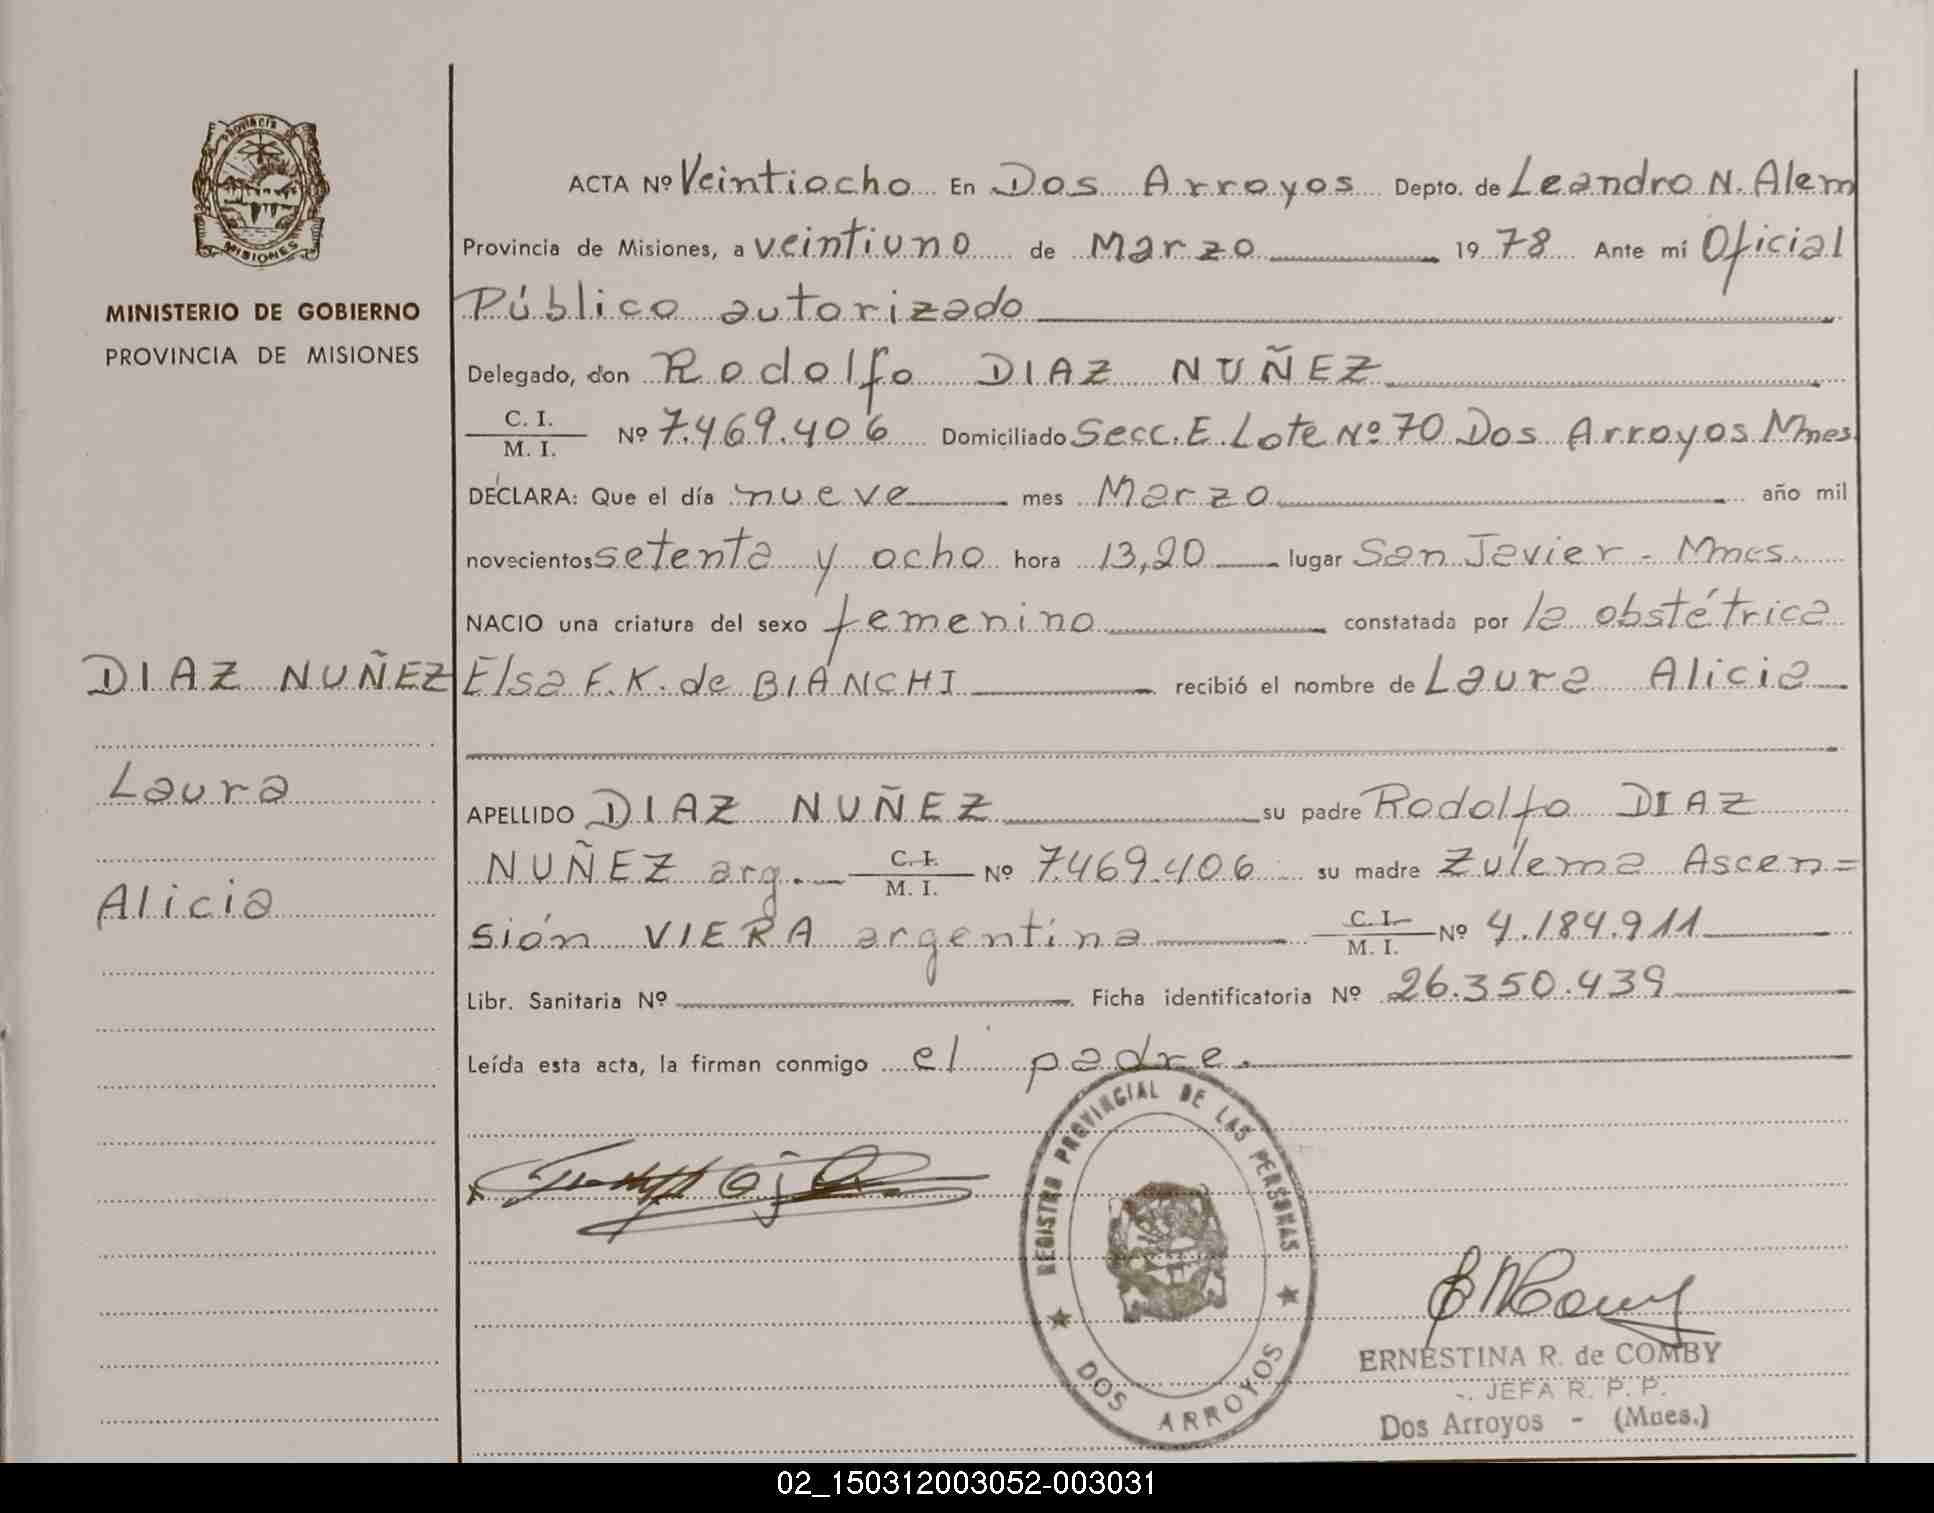 Provincia
MISIONES
MINISTERIO DE GOBIERNO
PROVINCIA DE MISIONES
DIAZ NUÑEZ
Laura
Alicia
ACTA Nº Veintiocho En Dos Arroyos Depto. de Leandro N. Alem
Provincia de Misiones, a veintiuno de Marzo 1978 Ante mí Oficial
Público autorizado
Delegado, don Rodolfo DIAZ NUÑEZ
C. I.
M. I. Nº 7.469.406 Domiciliado Secc. E Lote Nº 70 Dos Arroyos Mnes
DECLARA: Que el día nueve mes Marzo año mil
novecientos setenta y ocho hora 13,20 lugar San Javier - Mnes.
NACIO una criatura del sexo femenino constatada por la obstétrica
Elsa F. K. de BIANCHI recibió el nombre de Laura Alicia
APELLIDO DIAZ NUÑEZ su padre Rodolfo DIAZ
NUÑEZ arg. C. I. M. I. Nº 7.469.406 su madre Zulema Ascen=
sión VIERA argentina C. I. M. I. Nº 4.184.911
Libr. Sanitaria Nº Ficha identificatoria Nº 26.350.439
Leída esta acta, la firman conmigo el padre.
REGISTRO PROVINCIAL DE LAS PERSONAS
DOS ARROYOS
ERNESTINA R. de COMBY
JEFA R. P. P.
Dos Arroyos - (Mnes.)
02_150312003052-003031